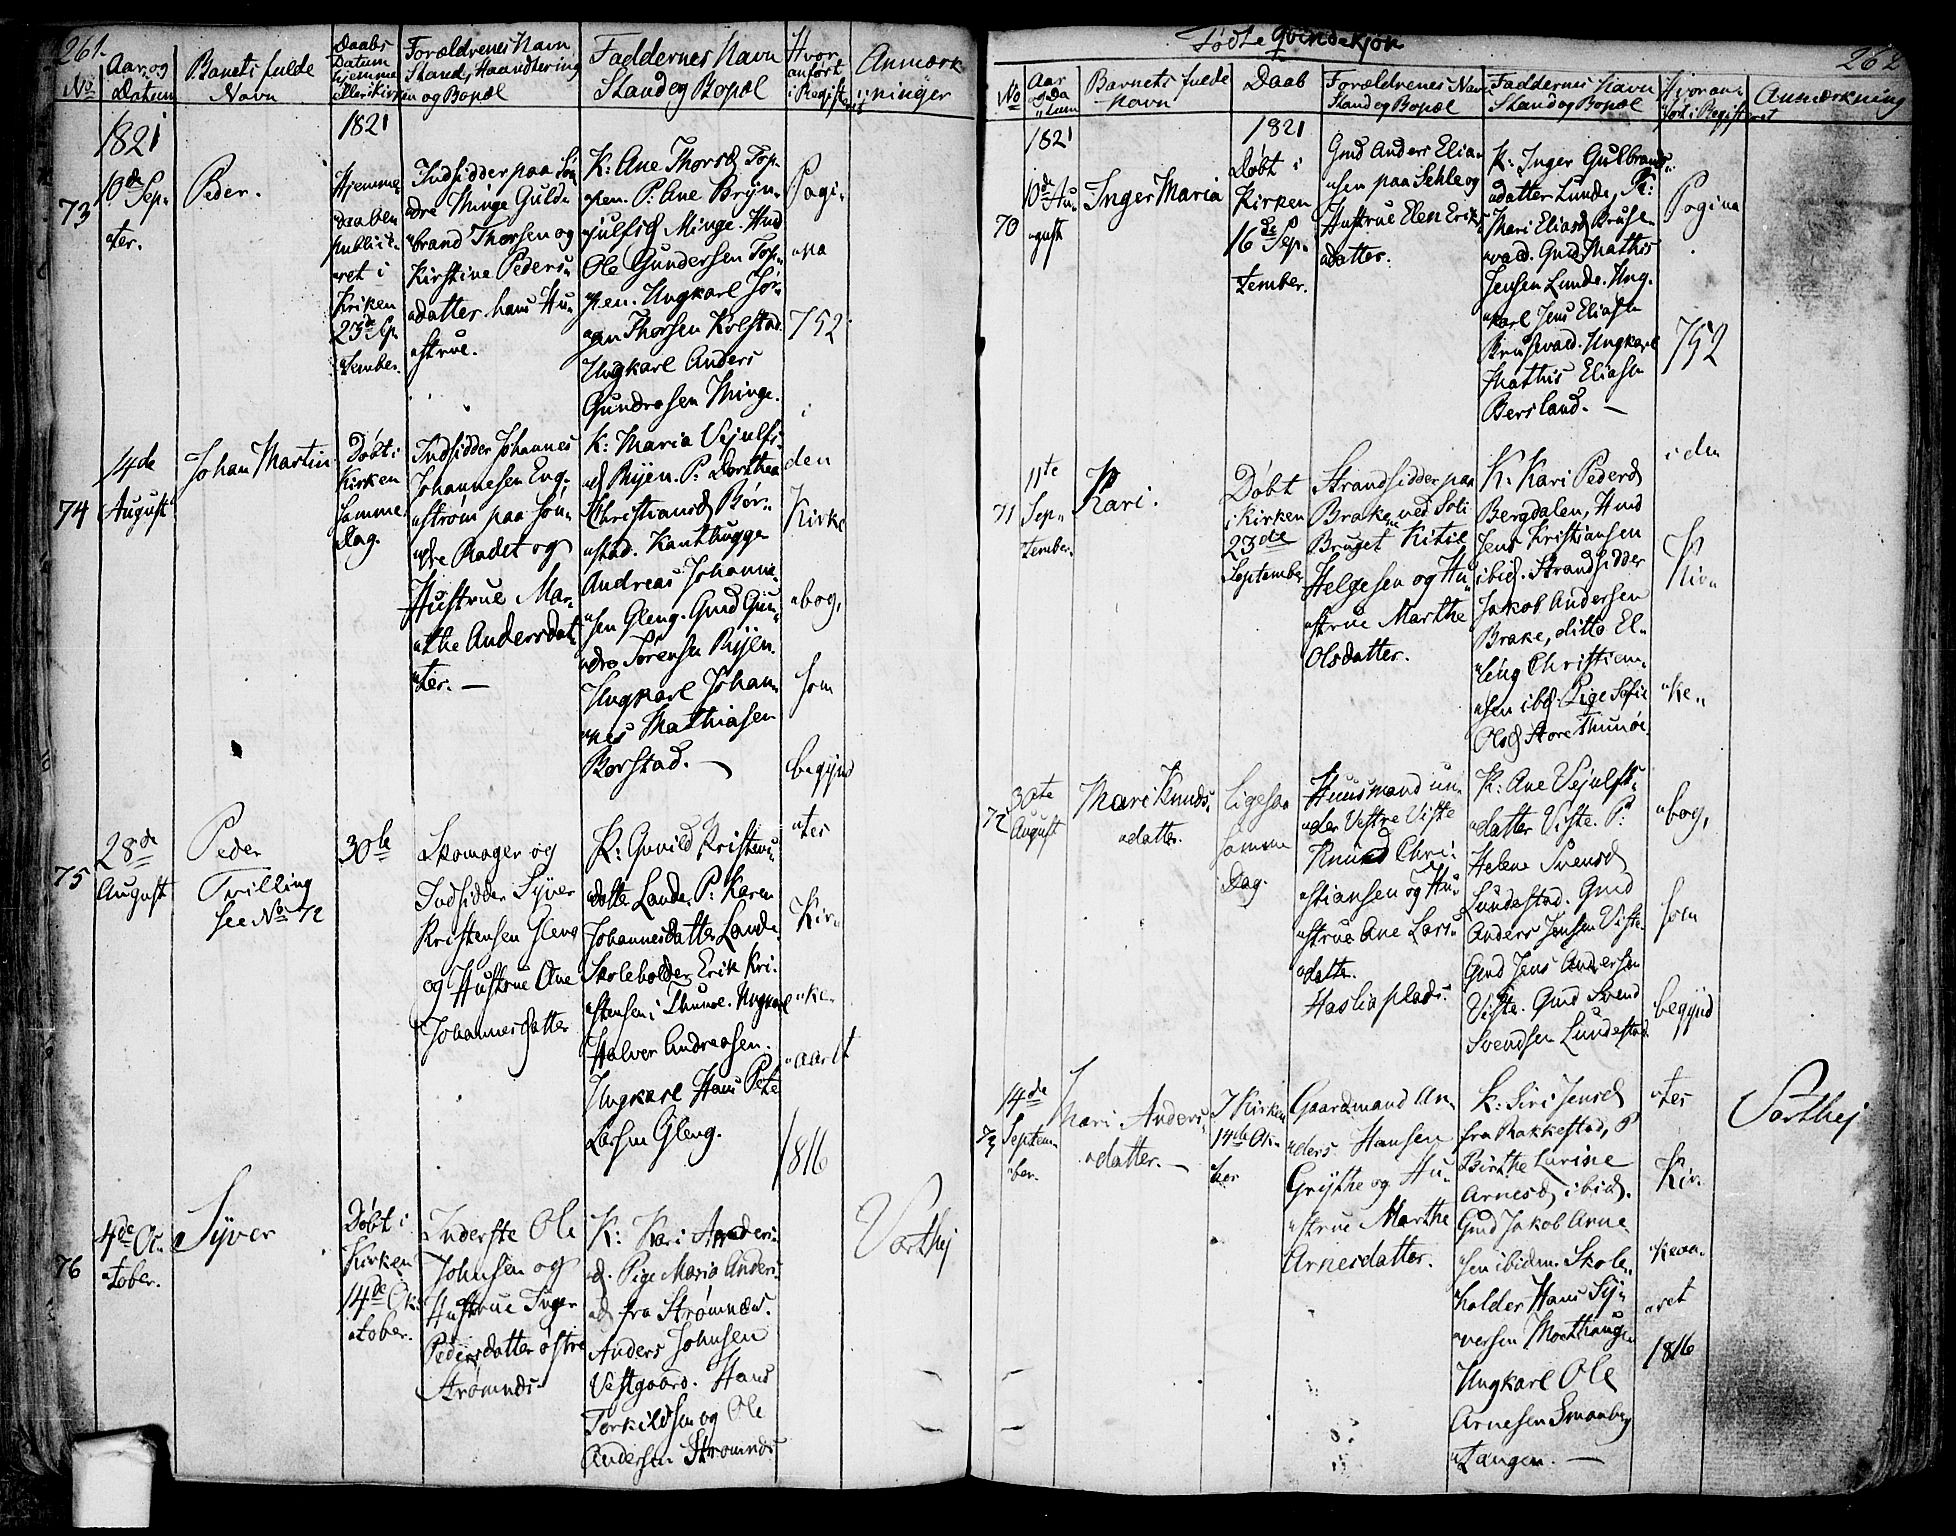 261.
No
Aar og
Datum
Barnets fulde
Navn
Daabs
Datum
hjemme
eller i Kirken
Forældrenes Navn
Stand, Haandtering
og Bopæl
Faddernes Navn
Stand og Bopæl
Hvor
anført
i Registeret
Anmærk
ninger
1821
1821
73
10de Sep-
ter.
Peder.
Hjemme
daaben
publice-
ret i
Kirken
23de Sep
tember.
Indsidder paa Søn
dre Minge Guld-
brand Thorsen og
Kirstine Peders-
datter hans Hu-
strue.
K: Ane Thorsd Top-
pen. P: Ane Bryn-
julfsd Minge. Hmd
Ole Gundersen Top-
pen. Ungkarl Jør-
gen Thorsen Kolstad
Ungkarl Anders
Gundersen Minge.
Pagi-
na
752
i
den
Kirke
bog,
som
begynd
tes
Kir-
ke-
aaret
1816
74
14de
August
Johan Martin
Døbt i
Kirken
Samme
Dag.
Indsidder Johannes
Johannesen Eng-
strøm paa Søn-
dre Radet og
Hustrue Mar-
the Andersdat
ter. —
K: Maria Vejulfs
d Rijen. P: Dorthea
Christiansd Bør-
stad. Kanthugger
Andreas Johanne-
sen Gleng. Gmd Gun-
der Sørensen Rijen.
Ungkarl Johan-
nes Mathiasen
Børstad. —
75
28de
August
Peder
Trilling
see No 72
30te
Skomager og
Indsidder Syver
Kristensen Gleng
og Hustrue Ane
Johannesdatter
K: Gunild Kristens-
datte Lande. P: Karen
Johannesdatter Lande.
Skoleholder Erik Kri-
stensen i Thunøe. Ungkarl
Halvor Andreasen.
Ungkarl Hans Peter
Larsen Gleng.
76
4de Oc-
tober.
Syver
Døbt i
Kirken
14de Ok
tober.
Inderste Ole
Johnsen og
Hustrue Inger
Pedersdatter østre
Strømnes
K: Kari Anders-
d. Pige Maria Anders-
d fra Strømnes.
Anders Johnsen
Vestgaard. Hans
Torkildsen og Ole
Andersen Strømnes
Varthej
Fødte Qvindekjøn
262
No
Aar
og Da
tum
Barnets fulde
Navn
Daab
Forældrenes Navn
Stand og Bopæl
Faddernes Navn
Stand og Bopæl
Hvor an-
ført i Registeret
Anmærkning
1821
1821
70
10de Au-
gust
Inger Maria
Døbt i
Kirken
16de Sep-
tember.
Gmd Anders Elia-
sen paa Sehle og
Hustrue Elen Eriks
datter.
K: Inger Gulbrands-
datter Lunde, P:
Mari Eliasd Bruse
vald. Gmd Mathis
Jensen Lunde. Ung-
karl Jens Eliasen
Brusevald. Ungkarl
Mathis Eliasen
Bersland. —
Pagina
752
i den
Kir-
ke-
bog,
som
begynd
tes
Kir-
keaa-
ret
1816
71
11te
Sep-
tember.
Kari.
Døbt
i Kirken
23de
September
Strandsidder paa
Brake ved Soli
Bruget Kitil
Helgesen og Hu-
strue Marthe
Olsdatter.
K: Kari Pedersd
Bergdalen, Hmd
Jens Kristiansen
ibid. Strandsidder
Jakob Andersen
Brake, ditto El-
ling Christian-
sen ibd. Pige Sofie
Olsd Store Thunøe.
72
30te
August
Mari Knuds-
datter.
Ligesaa
samme
Dag.
Huusmand un-
der Vestre Viste
Knud Chri-
stiansen og Hu-
strue Ane Lars-
datter.
Haslia plads.
K: Ane Vejulfs-
datter Viste. P:
Helene Svensd
Lundestad. Gmd
Anders Jensen Viste.
Gmd Jens Andersen
Viste. Gmd Svend
Svendsen Lundestad.
73
14de
Septem-
ber.
Mari Anders-
datter. —
I Kirken
14de Ok-
ber
Gaardmand An-
ders Hansen
Grythe og Hu-
strue Marthe
Arnesdatter.
K: Siri Jensd
fra Rakkestad, P
Birthe Lurine
Arnesd ibid.
Gmd Jakob Arne
sen ibidem Skole-
holder Hans Sy-
versen Moethaugen
Ungkarl Ole
Arnesen Smaaberg
tangen. —
Varthej